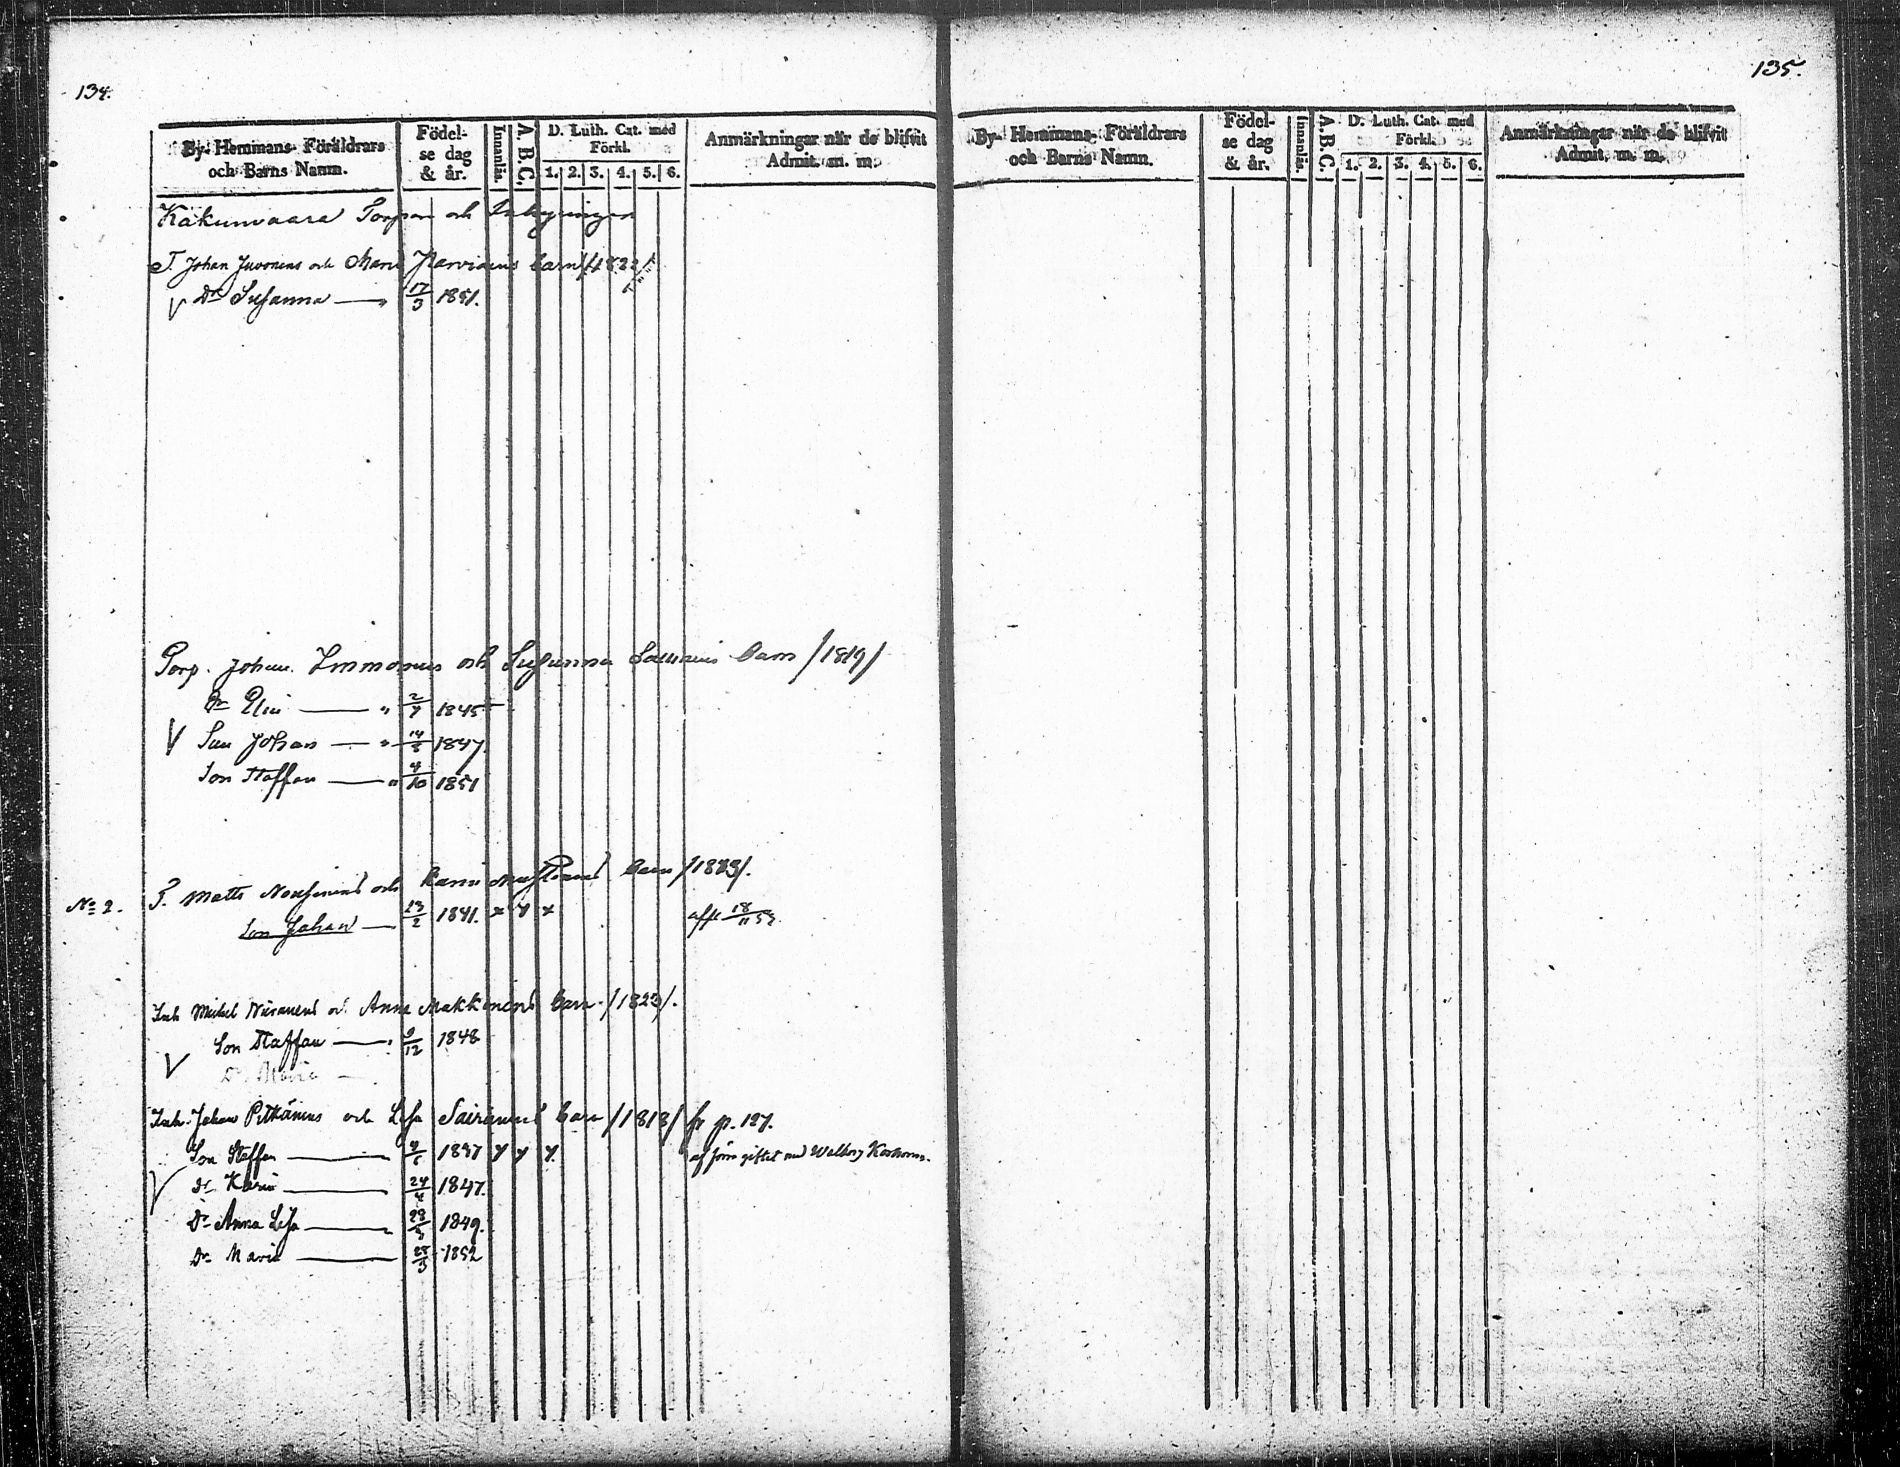 134.
By- Hemmans- Föräldrars och Barns Namn.
Födelse dag & år.
Innanläs.
A.B.C.
D. Luth. Cat. med Förkl.
1. 2. 3. 4. 5. 6.
Anmärkningar när de blifvit Admit. m. m.
Kakunvaara Torpare och
T. Johan Juvonens och Maria Parviains barn
Dr Susanna — 17/3 1851.
Torp. Johan Immonens och Susanna barn /1819/
Dr Elin — " 2/7 1845
Son Johan — " 1847
Son Staffan — " 4/10 1851
No 2. T. Matts och Karin barn
Son Johan — 23/2 1841. x x x 18/11 53
Inh Michel och Anna Makkonens barn /1823/.
Son Staffan — 9/12 1848
Dr Maria —
Inh. Johan Pitkänens och Lisa Sairanens barn /1818/ fr p. 127.
Son Staffan — 1837 x x x giftet med Walborg
Dr Karin — 24/4 1847.
Dr Anna Lisa — 1849.
Dr Maria — 25/3 1852
135.
By- Hemmans- Föräldrars och Barns Namn.
Födelse dag & år.
Innanläs.
A.B.C.
D. Luth. Cat. med Förkl.
1. 2. 3. 4. 5. 6.
Anmärkningar när de blifvit Admit. m. m.